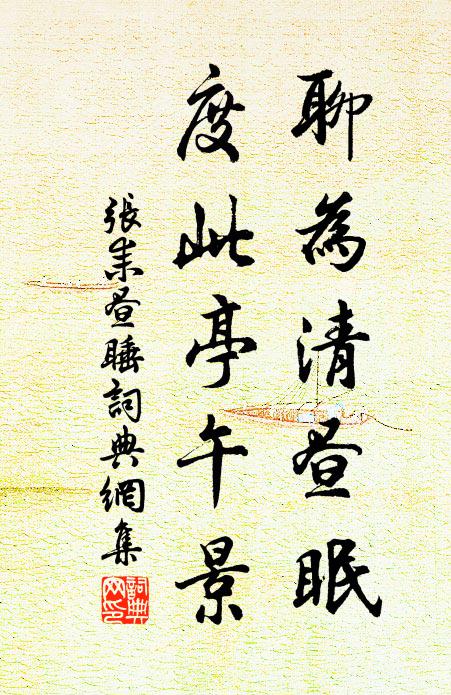 聊為清昼眠
度此亭午景
張耒昼睡詞典網集
詞典网印